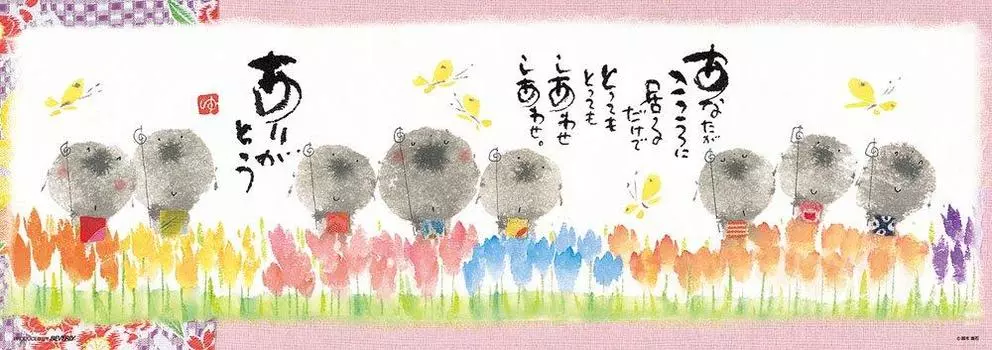 あなたが
こころに
居る
だけで
とっても
とっても
しあわせ
しあわせ。
ありが
とう
ゆ
BEVERLY